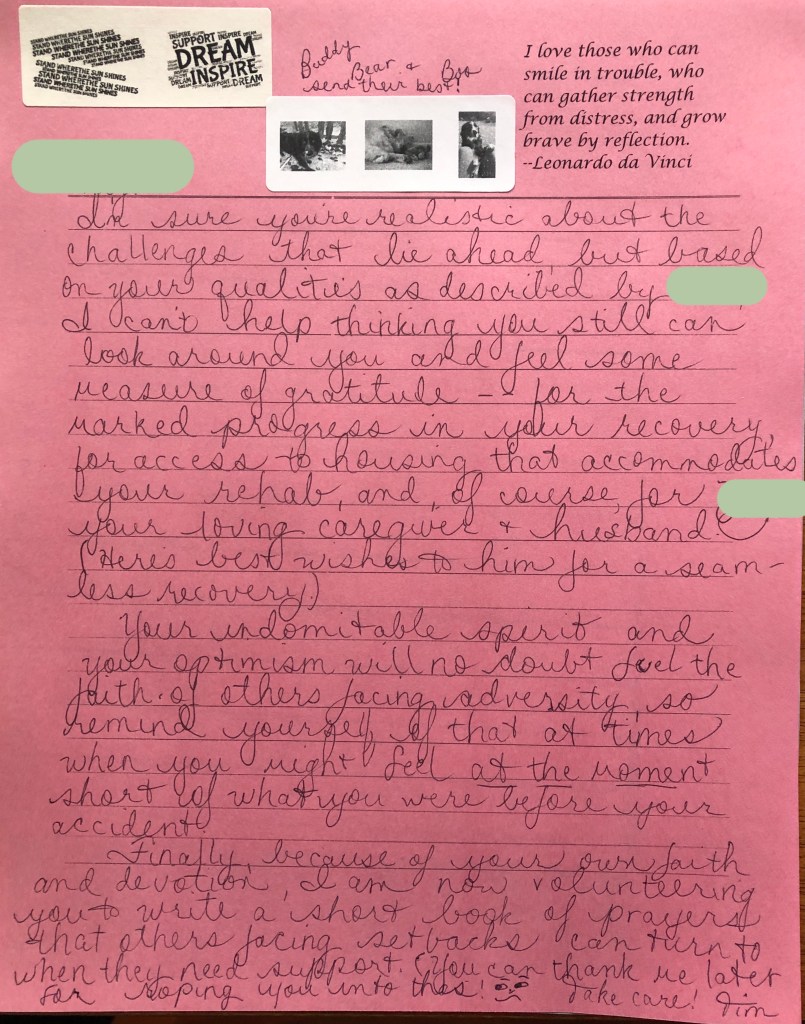 STAND WHERETHE SUN SHINES
STAND WHERETHE SUN SHINES
STAND WHERETHE SUN SHINES
STAND WHERETHE SUN SHINES
STAND WHERETHE SUN SHINES
STAND WHERETHE SUN SHINES
STAND WHERETHE SUN SHINES
STAND WHERETHE SUN SHINES
INSPIRE DREAM
SUPPORT INSPIRE
DREAM
INSPIRE
SUPPORT DREAM
Buddy
Bear & Boo
send their best!
I love those who can
smile in trouble, who
can gather strength
from distress, and grow
brave by reflection.
--Leonardo da Vinci
I'm sure you're realistic about the
challenges that lie ahead, but based
on your qualities as described by
I can't help thinking you still can
look around you and feel some
measure of gratitude -- for the
marked progress in your recovery,
for access to housing that accommodates
your rehab, and, of course, for
your loving caregiver & husband.
(Here's best wishes to him for a seam-
less recovery.)
Your indomitable spirit and
your optimism will no doubt fuel the
faith of others facing adversity, so
remind yourself of that at times
when you might feel at the moment
short of what you were before your
accident.
Finally, because of your own faith
and devotion, I am now volunteering
you to write a short book of prayers
that others facing setbacks can turn to
when they need support. (You can thank me later
for roping you into this! Take care! Tim